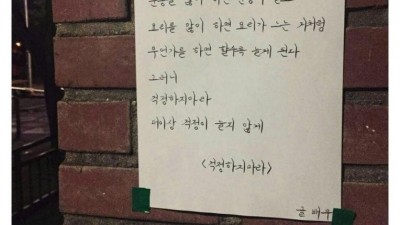 요리를 많이 하면 요리가 느는 것처럼
무언가를 하면 할수록 늘게 된다
그러니
걱정하지마라
더이상 걱정이 늘지 않게
<걱정하지마라>
글 배우